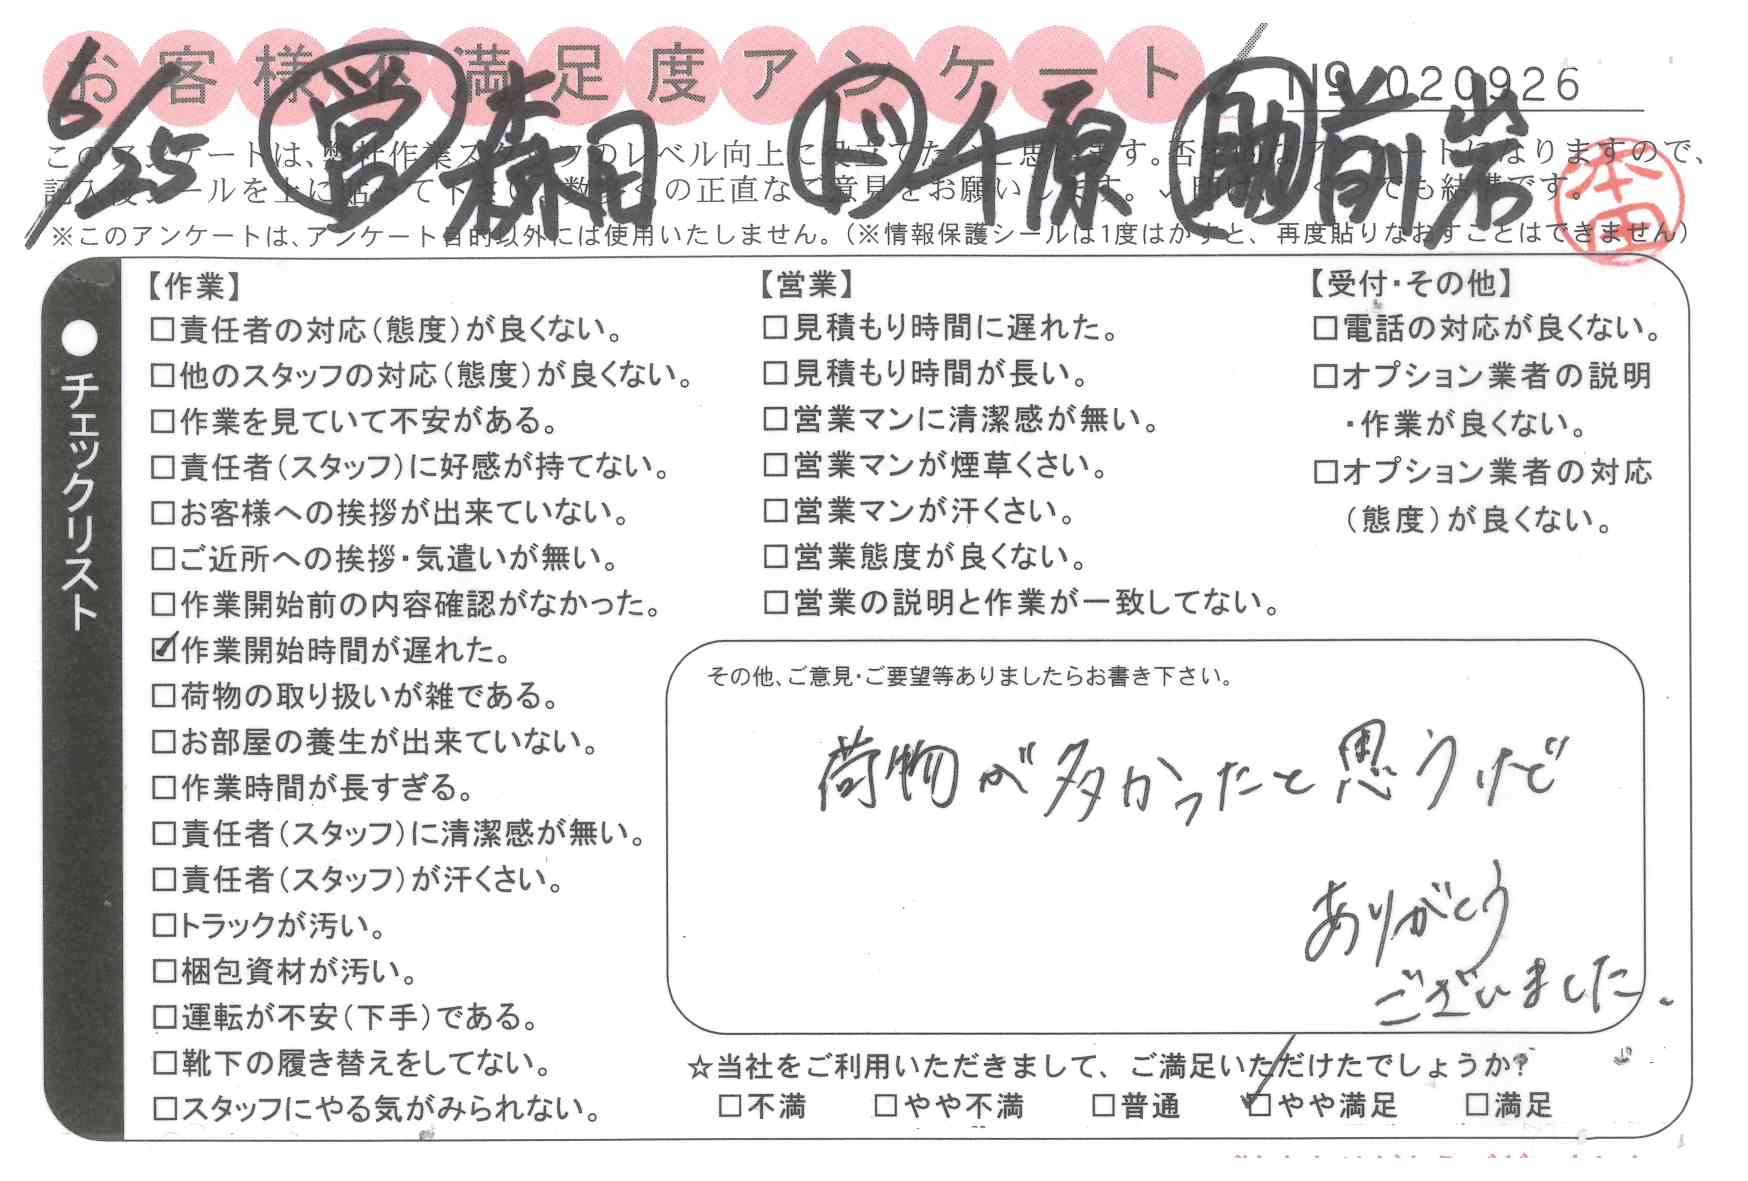 お客様不満足度アンケート
№ 020926
6/25 営 森田 ド 千原 助 前岩
本田
このアンケートは、弊社作業スタッフのレベル向上に役立てたいと思います。否定的なアンケートになりますので、
記入後シールを上に貼って下さい。数多くの正直なご意見をお願いします。✓印はいくつでも結構です。
※このアンケートは、アンケート目的以外には使用いたしません。(※情報保護シールは1度はがすと、再度貼りなおすことはできません)
●チェックリスト
【作業】
□責任者の対応(態度)が良くない。
□他のスタッフの対応(態度)が良くない。
□作業を見ていて不安がある。
□責任者(スタッフ)に好感が持てない。
□お客様への挨拶が出来ていない。
□ご近所への挨拶・気遣いが無い。
□作業開始前の内容確認がなかった。
☑作業開始時間が遅れた。
□荷物の取り扱いが雑である。
□お部屋の養生が出来ていない。
□作業時間が長すぎる。
□責任者(スタッフ)に清潔感が無い。
□責任者(スタッフ)が汗くさい。
□トラックが汚い。
□梱包資材が汚い。
□運転が不安(下手)である。
□靴下の履き替えをしてない。
□スタッフにやる気がみられない。
【営業】
□見積もり時間に遅れた。
□見積もり時間が長い。
□営業マンに清潔感が無い。
□営業マンが煙草くさい。
□営業マンが汗くさい。
□営業態度が良くない。
□営業の説明と作業が一致してない。
【受付・その他】
□電話の対応が良くない。
□オプション業者の説明
・作業が良くない。
□オプション業者の対応
(態度)が良くない。
その他、ご意見・ご要望等ありましたらお書き下さい。
荷物が多かったと思うけど
ありがとう
ございました。
☆当社をご利用いただきまして、ご満足いただけたでしょうか?
□不満 □やや不満 □普通 ☑やや満足 □満足